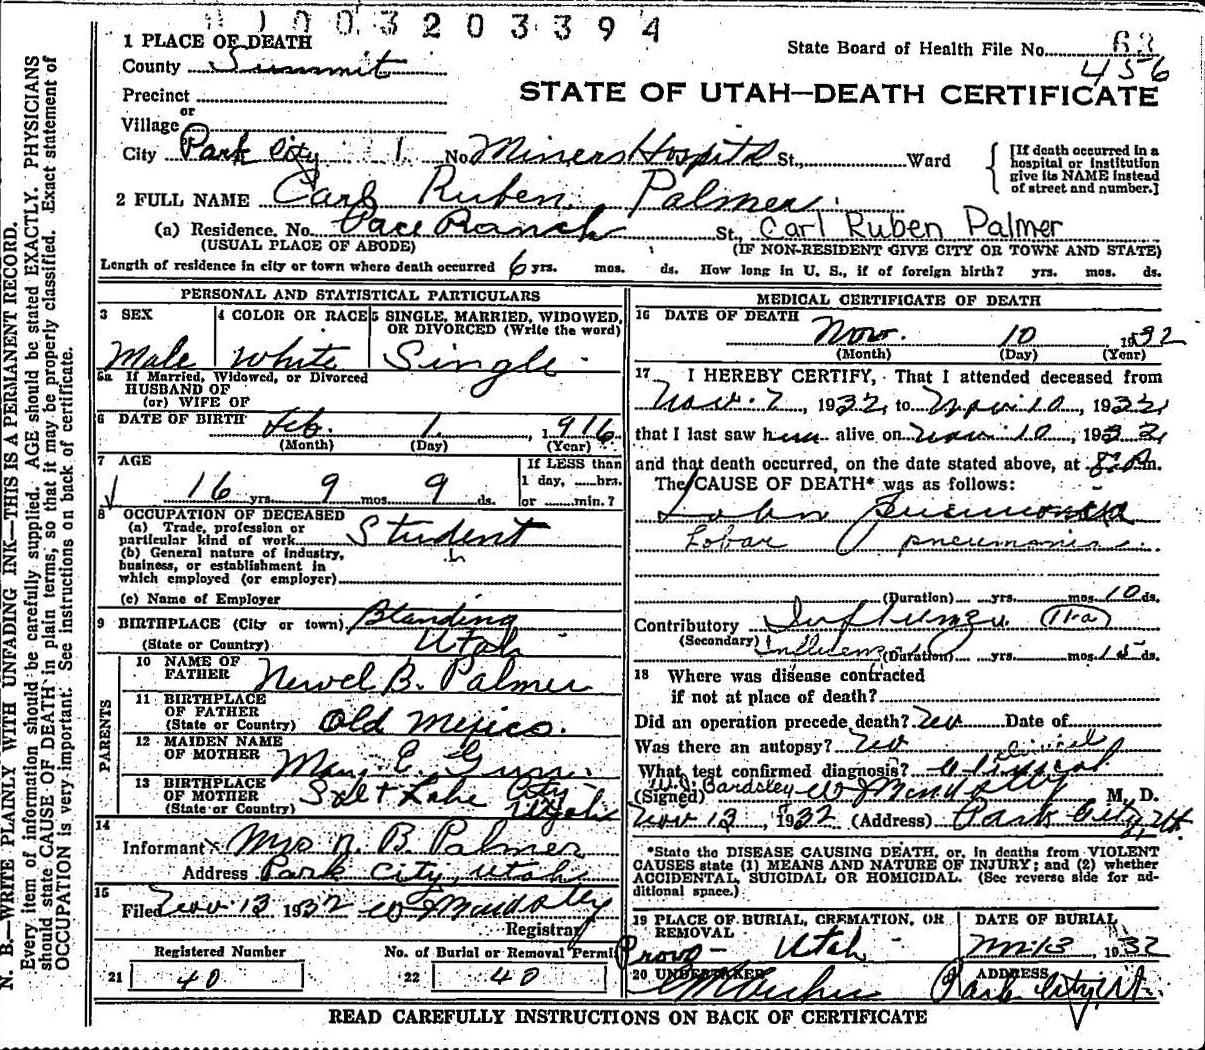 0 1 0 0 3 2 0 3 3 9 4
1 PLACE OF DEATH
County Summit
State Board of Health File No. 63
456
Precinct
or
Village
STATE OF UTAH—DEATH CERTIFICATE
City Park City 1 No. Miners Hospital St., Ward
[If death occurred in a hospital or institution give its NAME instead of street and number.]
2 FULL NAME Carl Ruben Palmer
(a) Residence. No. Pace Ranch St., Carl Ruben Palmer
(USUAL PLACE OF ABODE) (IF NON-RESIDENT GIVE CITY OR TOWN AND STATE)
Length of residence in city or town where death occurred 6 yrs. mos. ds. How long in U. S., if of foreign birth? yrs. mos. ds.
PERSONAL AND STATISTICAL PARTICULARS
3 SEX 4 COLOR OR RACE 5 SINGLE, MARRIED, WIDOWED, OR DIVORCED (Write the word)
Male White Single
5a If Married, Widowed, or Divorced
HUSBAND OF
(or) WIFE OF
6 DATE OF BIRTH Feb. 1, 1916
(Month) (Day) (Year)
7 AGE If LESS than
1 day, hrs.
16 yrs. 9 mos. 9 ds. or min.?
8 OCCUPATION OF DECEASED
(a) Trade, profession or
particular kind of work Student
(b) General nature of industry,
business, or establishment in
which employed (or employer)
(c) Name of Employer
9 BIRTHPLACE (City or town) Blanding
(State or Country) Utah
PARENTS
10 NAME OF
FATHER Newel B. Palmer
11 BIRTHPLACE
OF FATHER
(State or Country) Old Mexico.
12 MAIDEN NAME
OF MOTHER Mary E.
13 BIRTHPLACE
OF MOTHER Salt Lake City
(State or Country) Utah
14
Informant Mrs N. B. Palmer
Address Park City, Utah
15
Filed Nov. 13 1932
Registrar
Registered Number No. of Burial or Removal Permit
21 40 22 40
MEDICAL CERTIFICATE OF DEATH
16 DATE OF DEATH
Nov. 10 1932
(Month) (Day) (Year)
17 I HEREBY CERTIFY, That I attended deceased from
Nov. 7, 1932, to Nov. 10, 1932,
that I last saw him alive on Nov. 10, 1932,
and that death occurred, on the date stated above, at m.
The CAUSE OF DEATH* was as follows:
Lobar Pneumonia
Lobar pneumonia
(Duration) yrs. mos. 10 ds.
Contributory Influenza 11-a
(Secondary) Influenza (Duration) yrs. mos. 15 ds.
18 Where was disease contracted
if not at place of death?
Did an operation precede death? No Date of
Was there an autopsy? No
Clinical
What test confirmed diagnosis? Clinical
W. J. Bardsley
(Signed) M. D.
Nov 13, 1932 (Address) Park City, Ut.
*State the DISEASE CAUSING DEATH, or, in deaths from VIOLENT
CAUSES state (1) MEANS AND NATURE OF INJURY; and (2) whether
ACCIDENTAL, SUICIDAL OR HOMICIDAL. (See reverse side for ad-
ditional space.)
19 PLACE OF BURIAL, CREMATION, OR
REMOVAL
DATE OF BURIAL
Provo - Utah 13, 1932
20 UNDERTAKER ADDRESS
Park City, Ut.
READ CAREFULLY INSTRUCTIONS ON BACK OF CERTIFICATE
N. B.—WRITE PLAINLY WITH UNFADING INK—THIS IS A PERMANENT RECORD.
Every item of information should be carefully supplied. AGE should be stated EXACTLY. PHYSICIANS
should state CAUSE OF DEATH in plain terms, so that it may be properly classified. Exact statement of
OCCUPATION is very important. See instructions on back of certificate.